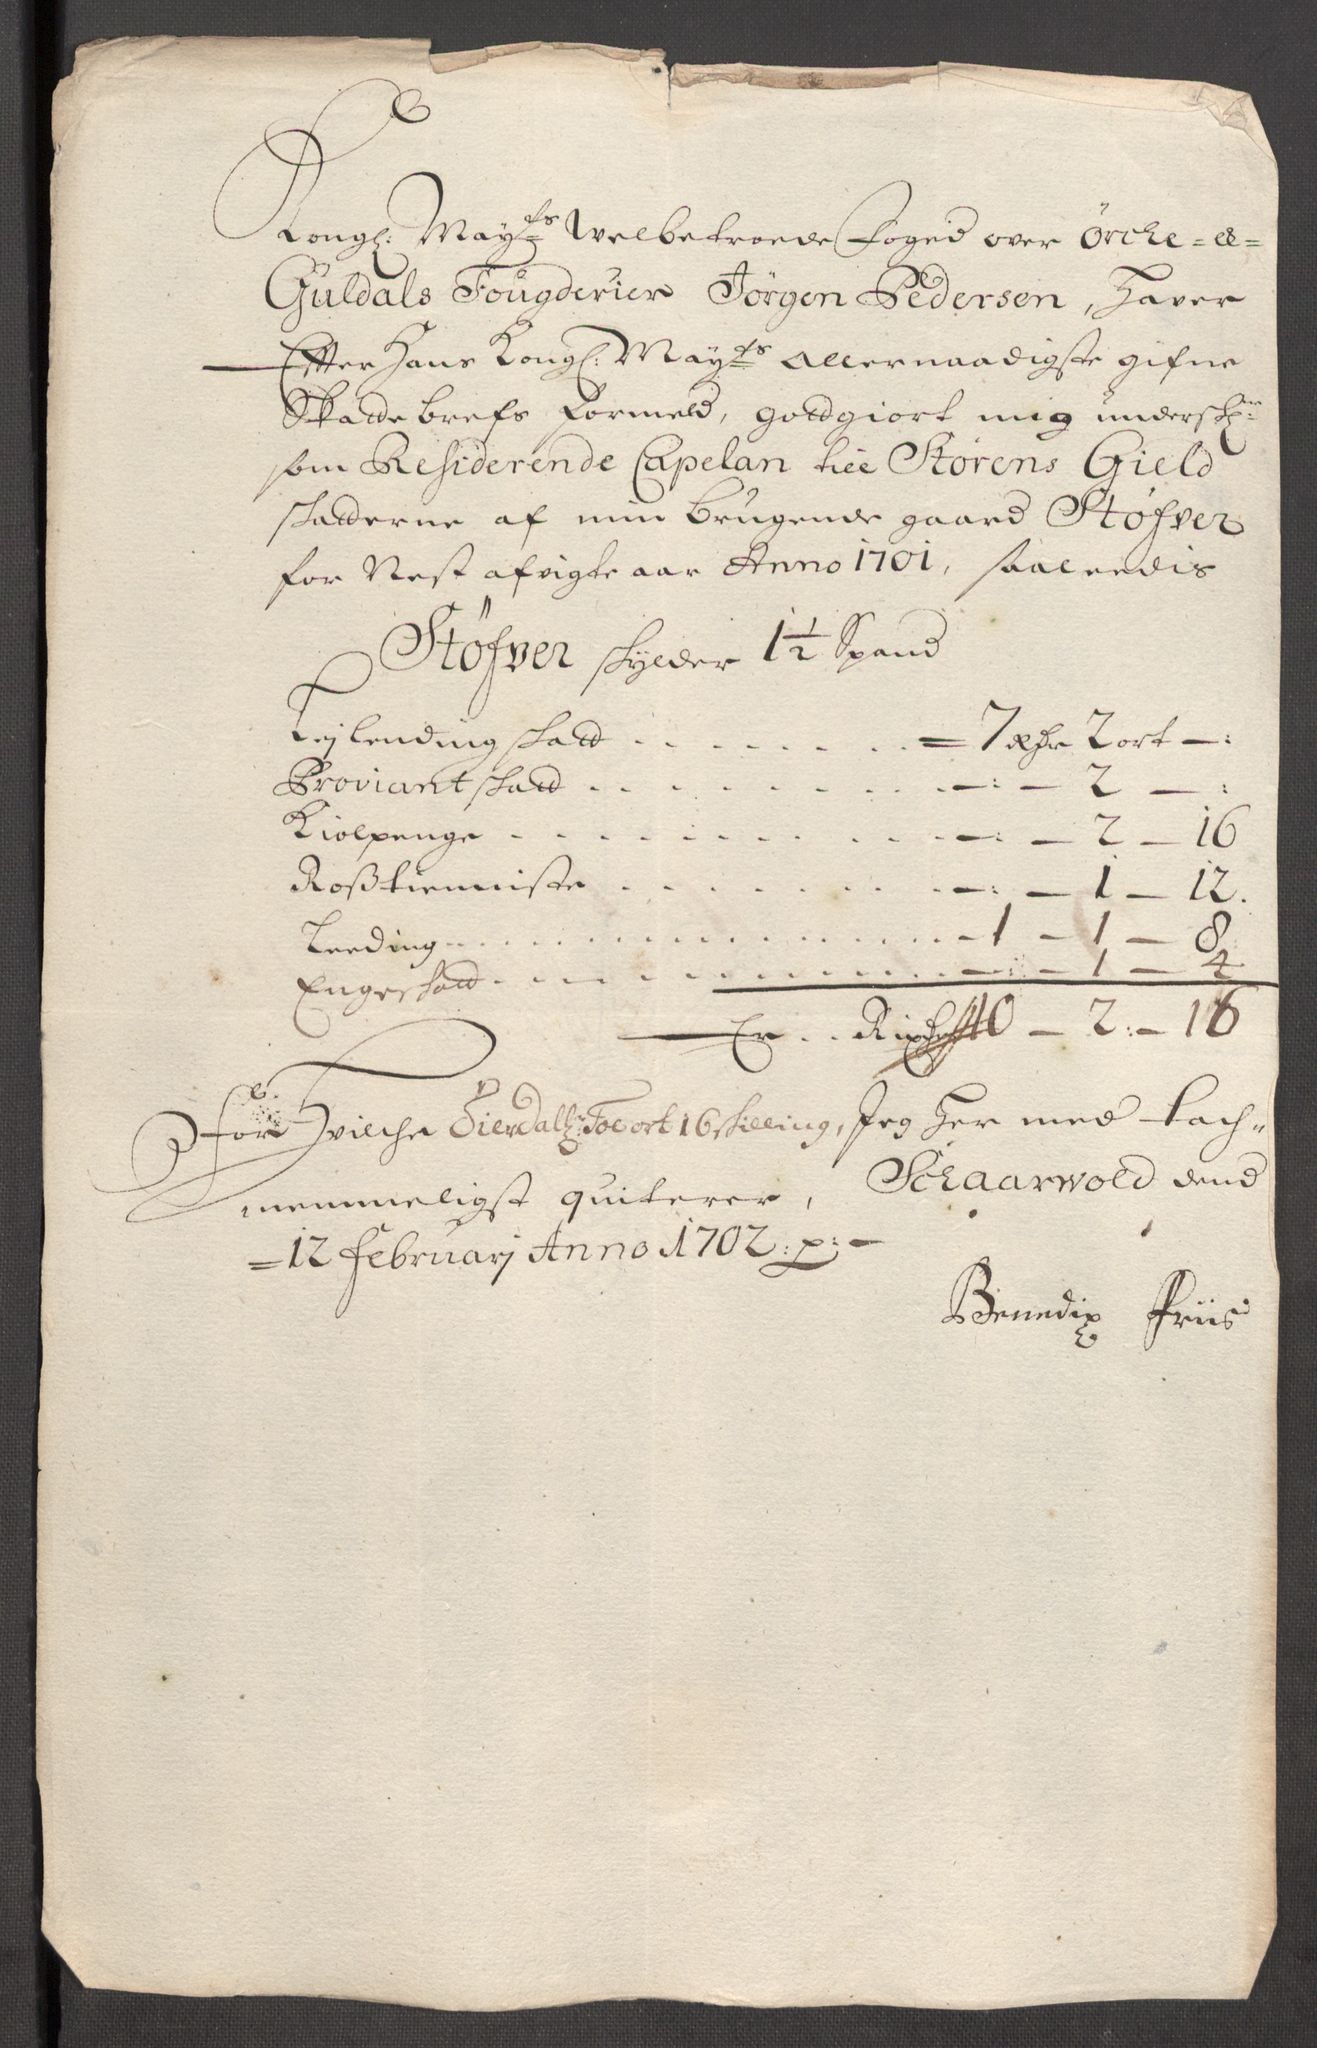 Kongl: Mayts Welbetroede Foged over Örcke- &-
Guldals Fougderier Jörgen Pedersen, Haver
Efter Hans Kongl: Mayts Allernaadigste gifne
Skatte brefs Formeld, godtgiort mig underskr:
som Residerende Capelan till Störens Gield
skatterne af min brugende gaard Stöfver
for Nest afvigte aar Anno 1701, saaleedis
Stöfver skylder 1½ Spand
Leylending skatt . . . . . = 7 rdr 2 ort —:
Proviant skatt . . . . . —: — 2 — :
Kiolpenge . . . . . —: — 2 — 16
Rosstienniste . . . . . —: — 1 — 12.
Leeding . . . . . 1 — 1 — 8
Engeskatt . . . . . —: — 1 — 4
Er . . Rixdr 10 — 2: — 16
For Hvilche Toe ort 16 skilling, Jeg Her med tach-
nemmeligst quiterer, Schaarwold dend
= 12 Februarj Anno 1702: p: —
Benedix Friis